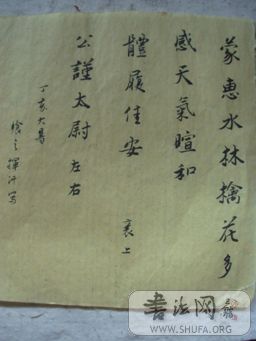 蒙惠水林擒花多
感天氣暄和
體履佳安 襄上
公謹太尉左右
丁亥大暑
書法网
WWW.SHUFA.ORG